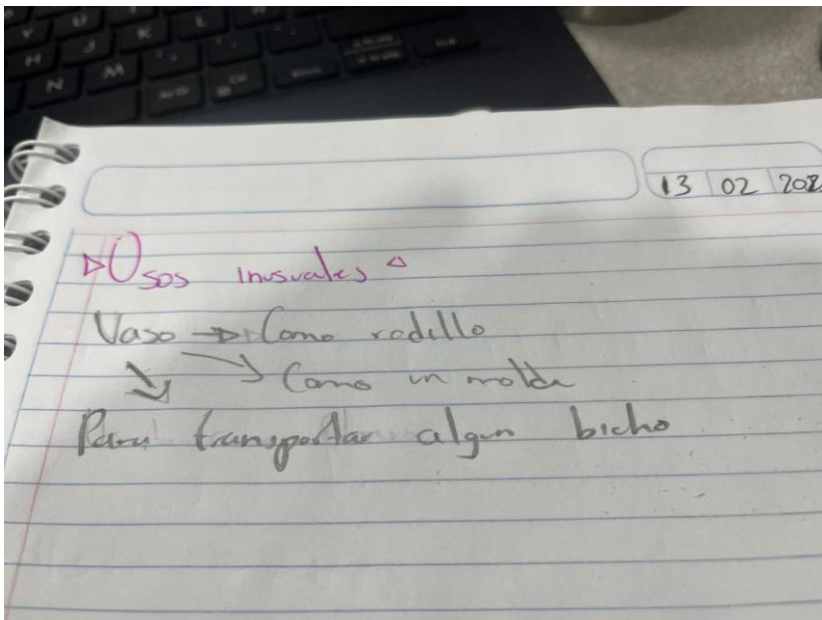 13 02 202
▷Usos inusuales △
Vaso → Como rodillo
↘ → Como un molde
Para transportar algun bicho